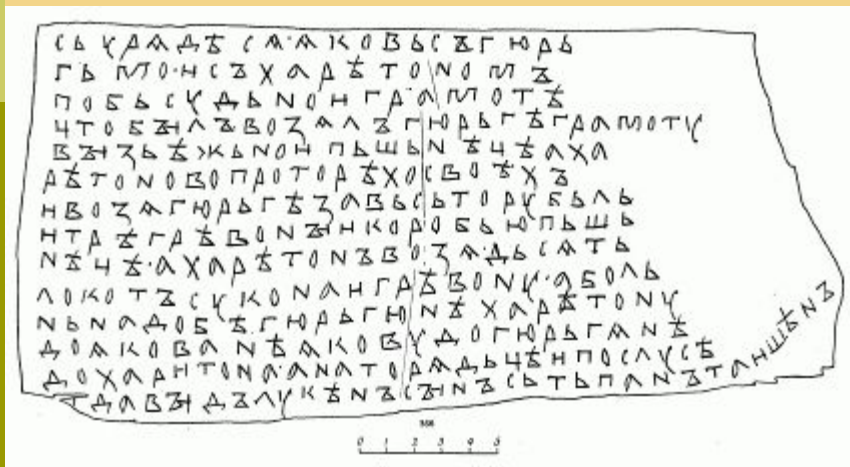 СЬ УРѦДѢ СѦ·ѦКОВЬСЪГЮРЬ
ГЬ МО·ИСЪХАРѢТОНОМЪ
ПОБЬСУДЬНОИГРАМОТѢ
ЦТОБЪИЛЪВОЗѦЛЪГЮРЬГѢГРАМОТУ
ВЪИЗЬѢЖЬНОИПЬШЬНѢЦѢАХА
РѢТОНОВОПРОТОРѢХОСВОѢХЪ
ИВОЗѦГЮРЬГѢЗАВЬСЬТОРУБЬЛЬ
ИТРѢГРѢВОНЪИИКОРОБЬЮПЬШЬ
НѢЦѢ·АХАРѢТОНЪВОЗѦ·ДЬСѦТЬ
ЛОКОТЪСУКОНАИГРѢВОНУ·АБОЛЬ
НЬНАДОБѢ·ГЮРЬГЮНѢХАРѢТОНУ
ДОѦКОВАНѢѦКОВУДОГЮРЬГѦНѢ
ДОХАРИТОНА·АНАТОРѦДЬЦѢИПОСЛУСѢ
ТДАВЪИДЪЛУКѢНЪСЪИНЪСЬТЬПАНЪТАИШѢНЪ
366
0 1 2 3 4 5